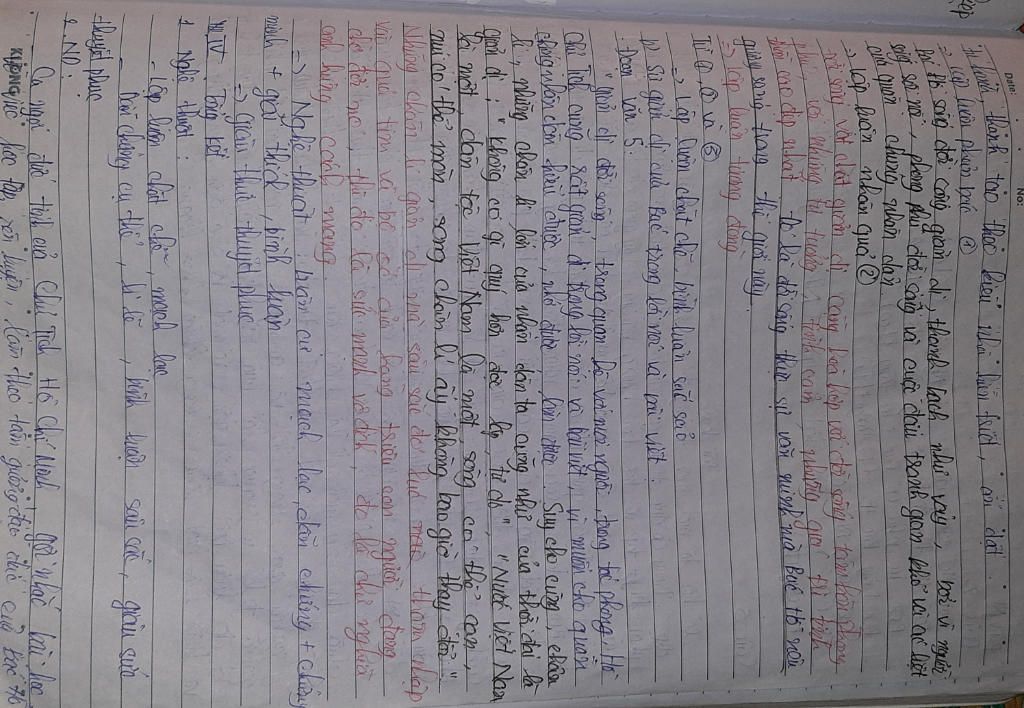 Date: No:
hiền triết, ẩn dật.
⇒ Lập luận phản bác ①
Bác Hồ sống đời sống giản dị, thanh bạch như vậy, bởi vì người
sống sôi nổi, phong phú đời sống và cuộc đấu tranh gian khổ và ác liệt
của quần chúng nhân dân
⇒ Lập luận nhân quả ②
Đời sống vật chất giản dị càng hòa hợp với đời sống tâm hồn phong
phú, với những tư tưởng, tình cảm, những giá trị tinh
thần cao đẹp nhất. Đó là đời sống thực sự văn minh mà Bác Hồ nêu
gương sáng trong thế giới này.
⇒ Lập luận tương đồng
Từ ①, ② và ③
⇒ Lập luận chặt chẽ, bình luận sâu sắc
b, Sự giản dị của Bác trong lời nói và bài viết.
Đoạn văn 5:
"Giản dị đời sống, trong quan hệ với mọi người, trong tác phong, Hồ
Chủ Tịch cũng rất giản dị trong lời nói và bài viết, vì muốn cho quần
chúng nhân dân hiểu được, nhớ được, làm được. Suy cho cùng, chân
lí, những chân lí lớn của nhân dân ta cũng như của thời đại là
giản dị: "Không có gì quý hơn độc lập, tự do", "Nước Việt Nam
là một, dân tộc Việt Nam là một, sông có thể cạn,
núi có thể mòn, song chân lí ấy không bao giờ thay đổi"
Những chân lí giản dị mà sâu sắc đó lúc thâm nhập
vào quả tim và bộ óc của hàng triệu con người đang
chờ đợi nó, thì đó là sức mạnh vô địch, đó là chủ nghĩa
anh hùng cách mạng
⇒ Nghệ thuật: luận cứ mạch lạc, dẫn chứng + chứng
minh + giải thích, bình luận
⇒ Giàu thuyết phục
IV Tổng kết
1. Nghệ thuật:
- Lập luận chặt chẽ, mạch lạc
- Dẫn chứng cụ thể, lí lẽ, bình luận sâu sắc, giàu sức
thuyết phục
2. ND:
Ca ngợi đức tính của Chủ Tịch Hồ Chí Minh, gợi nhắc bài học
học tập, rèn luyện, làm theo tấm gương đạo đức của Bác Hồ
KLONG